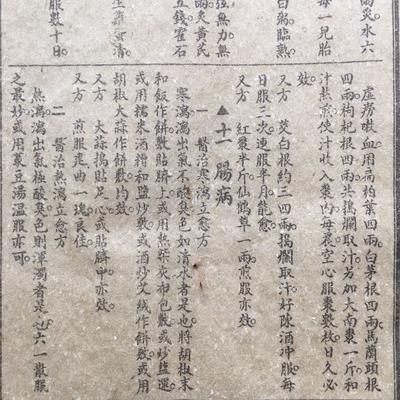 兩炙水六
每一兒胎
白粥臨熟
弦無力無
兩炙黃芪
五錢霍石
服數十日
虛癆嗽血用扁柏葉四兩白茅根四兩馬蘭頭根
四兩枸杞根四兩共搗爛取汁另加大南棗一斤和
汁熬煎使汁收入棗內每晨空心服棗數枚日久必
效
又方　茭白根約三四兩搗爛取汁好陳酒冲服每
日服三次連服半月能愈
又方　紅棗半斤仙鶴草一兩煎服亦效
▲十一　腸病
一　醫治寒瀉立愈方
寒瀉瀉出氣不酸臭色如清水者是也將胡椒末
和飯作餅數貼臍上或用熱柴灰布包數或炒鹽選
或用糯米酒糟和鹽炒數或酒炒艾絨作餅數或用
胡椒大蒜作餅數均效
又方　大蒜搗貼足心或貼臍中亦效
又方　煎服老曲一塊良佳
二　醫治熱瀉立愈方
熱瀉瀉出氣極酸臭色則渾濁者是也六一散服
之最妙或用菉豆湯溫服亦可